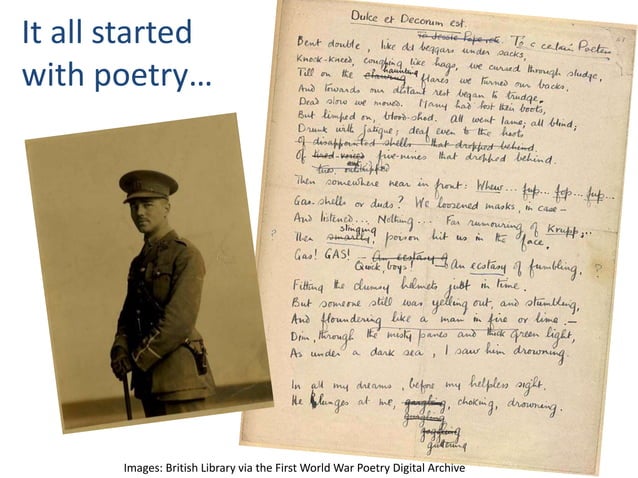 It all started
with poetry...
Dulce et Decorum est.
To Jessie Pope etc. To a certain Poetess
Bent double, like old beggars under sacks,
Knock-kneed, coughing like hags, we cursed through sludge,
haunting
Till on the clawing flares we turned our backs.
And towards our distant rest began to trudge.
Dead slow we moved. Many had lost their boots,
But limped on, blood-shod. All went lame; all blind;
Drunk with fatigue; deaf even to the hoots
Of disappointed shells that dropped behind.
Of tired-voiced five-nines that dropped behind.
Then somewhere near in front: Whew... fup... fop... fup...
Gas-shells or duds? We loosened masks, in case —
And listened... Nothing... Far rumouring of Krupp;..
stinging
Then smartly, poison hit us in the face.
Gas! GAS! — An ecstasy of
Quick, boys! An ecstasy of fumbling,
Fitting the clumsy helmets just in time.
But someone still was yelling out, and stumbling,
And floundering like a man in fire or lime. —
Dim, through the misty panes and thick green light,
As under a dark sea, I saw him drowning.
In all my dreams, before my helpless sight.
He plunges at me, gargling, choking, drowning.
gurgling
goggling
guttering
Images: British Library via the First World War Poetry Digital Archive